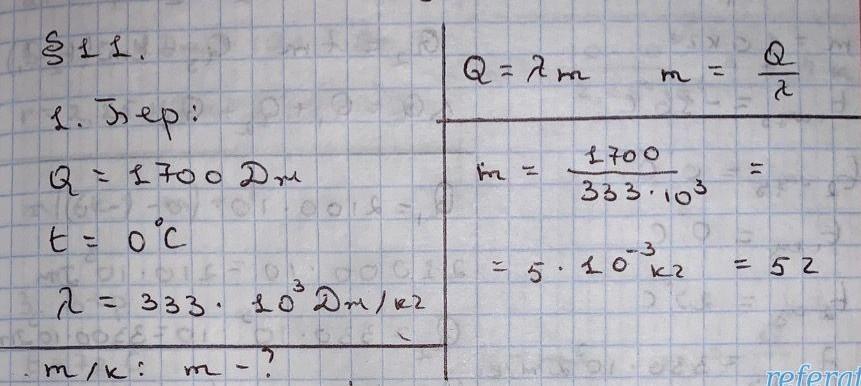 § 11.
1. Бер:
Q = 1700 Дж
t = 0°C
λ = 333 · 10³ Дж/кг
т/к: m - ?
Q = λm    m = Q/λ
m = 1700/333·10³ =
= 5 · 10⁻³ кг = 5г
referat